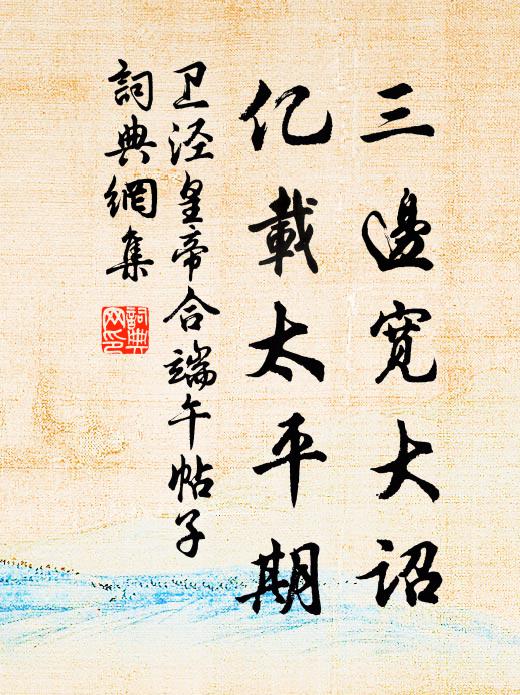 三邊寬大詔
亿載太平期
卫泾皇帝合端午帖子
詞典網集
詞典網印